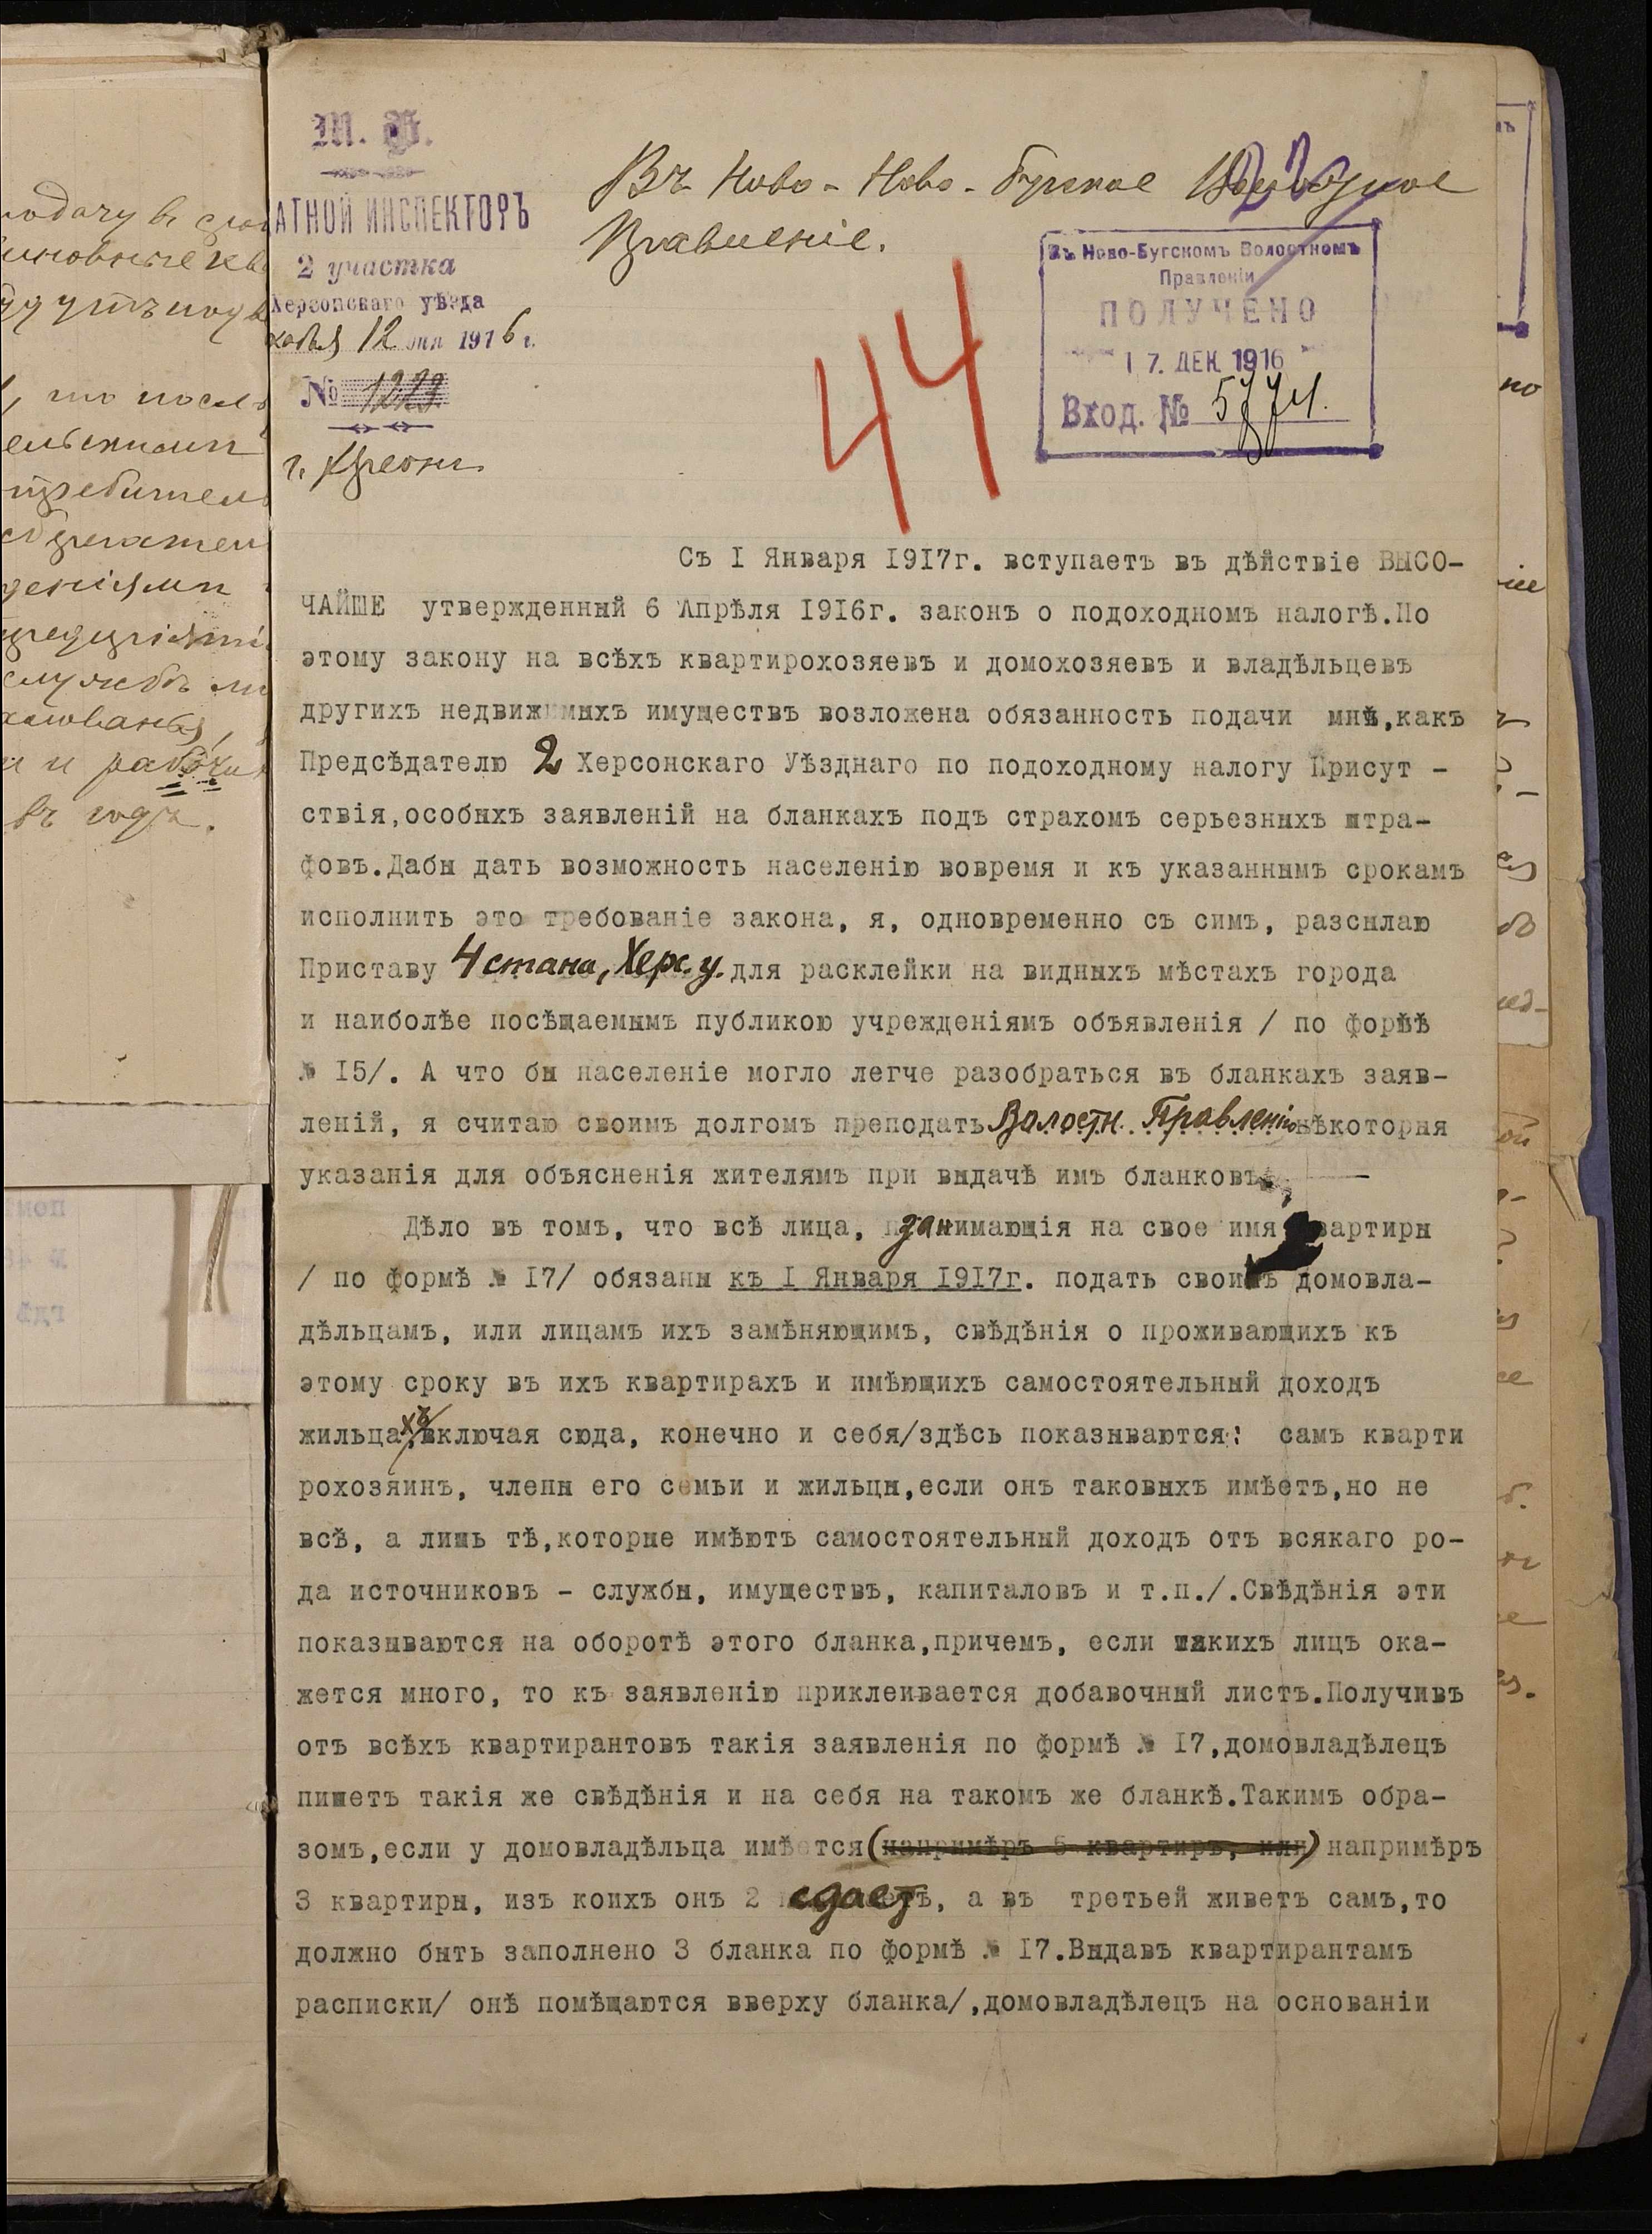 М. Ф.
АТНОЙ ИНСПЕКТОРЪ
2 участка
Херсонскаго уѣзда
12 дня 1916 г.
№ 1223.
г. Херсонъ
Въ Ново-Ново-Бугское Волостное
Правленіе.
Въ Ново-Бугскомъ Волостномъ
Правленіи
ПОЛУЧЕНО
17. ДЕК 1916
Вход. №
44
Съ I Января 1917г. вступаетъ въ дѣйствіе ВЫСО-
ЧАЙШЕ утвержденный 6 Апрѣля 1916г. законъ о подоходномъ налогѣ.По
этому закону на всѣхъ квартирохозяевъ и домохозяевъ и владѣльцевъ
другихъ недвижимыхъ имуществъ возложена обязанность подачи мнѣ,какъ
Предсѣдателю 2 Херсонскаго Уѣзднаго по подоходному налогу Присут -
ствія,особыхъ заявленій на бланкахъ подъ страхомъ серьезныхъ штра-
фовъ.Дабы дать возможность населенію вовремя и къ указаннымъ срокамъ
исполнить это требованіе закона, я, одновременно съ симъ, разсылаю
Приставу 4 стана, Херс. у. для расклейки на видныхъ мѣстахъ города
и наиболѣе посѣщаемымъ публикою учрежденіямъ объявленія / по формѣ
№ I5/. А что бы населеніе могло легче разобраться въ бланкахъ заяв-
леній, я считаю своимъ долгомъ преподать Волостн. Правленію нѣкоторыя
указанія для объясненія жителямъ при выдачѣ имъ бланковъ.
Дѣло въ томъ, что всѣ лица, занимающія на свое имя квартиры
/ по формѣ № I7/ обязаны къ I Января 1917г. подать своимъ домовла-
дѣльцамъ, или лицамъ ихъ замѣняющимъ, свѣдѣнія о проживающихъ къ
этому сроку въ ихъ квартирахъ и имѣющихъ самостоятельный доходъ
жильцахъ, включая сюда, конечно и себя/здѣсь показываются: самъ кварти
рохозяинъ, члены его семьи и жильцы,если онъ таковыхъ имѣетъ,но не
всѣ, а лишь тѣ,которые имѣютъ самостоятельный доходъ отъ всякаго ро-
да источниковъ - службы, имуществъ, капиталовъ и т.п./.Свѣдѣнія эти
показываются на оборотѣ этого бланка,причемъ, если такихъ лицъ ока-
жется много, то къ заявленію приклеивается добавочный листъ.Получивъ
отъ всѣхъ квартирантовъ такія заявленія по формѣ № I7,домовладѣлецъ
пишетъ такія же свѣдѣнія и на себя на такомъ же бланкѣ.Такимъ обра-
зомъ,если у домовладѣльца имѣется (напримѣръ 5 квартиръ, или) напримѣръ
3 квартиры, изъ коихъ онъ 2 сдаетъ, а въ третьей живетъ самъ,то
должно быть заполнено 3 бланка по формѣ № I7.Выдавъ квартирантамъ
расписки/ онѣ помѣщаются вверху бланка/,домовладѣлецъ на основаніи